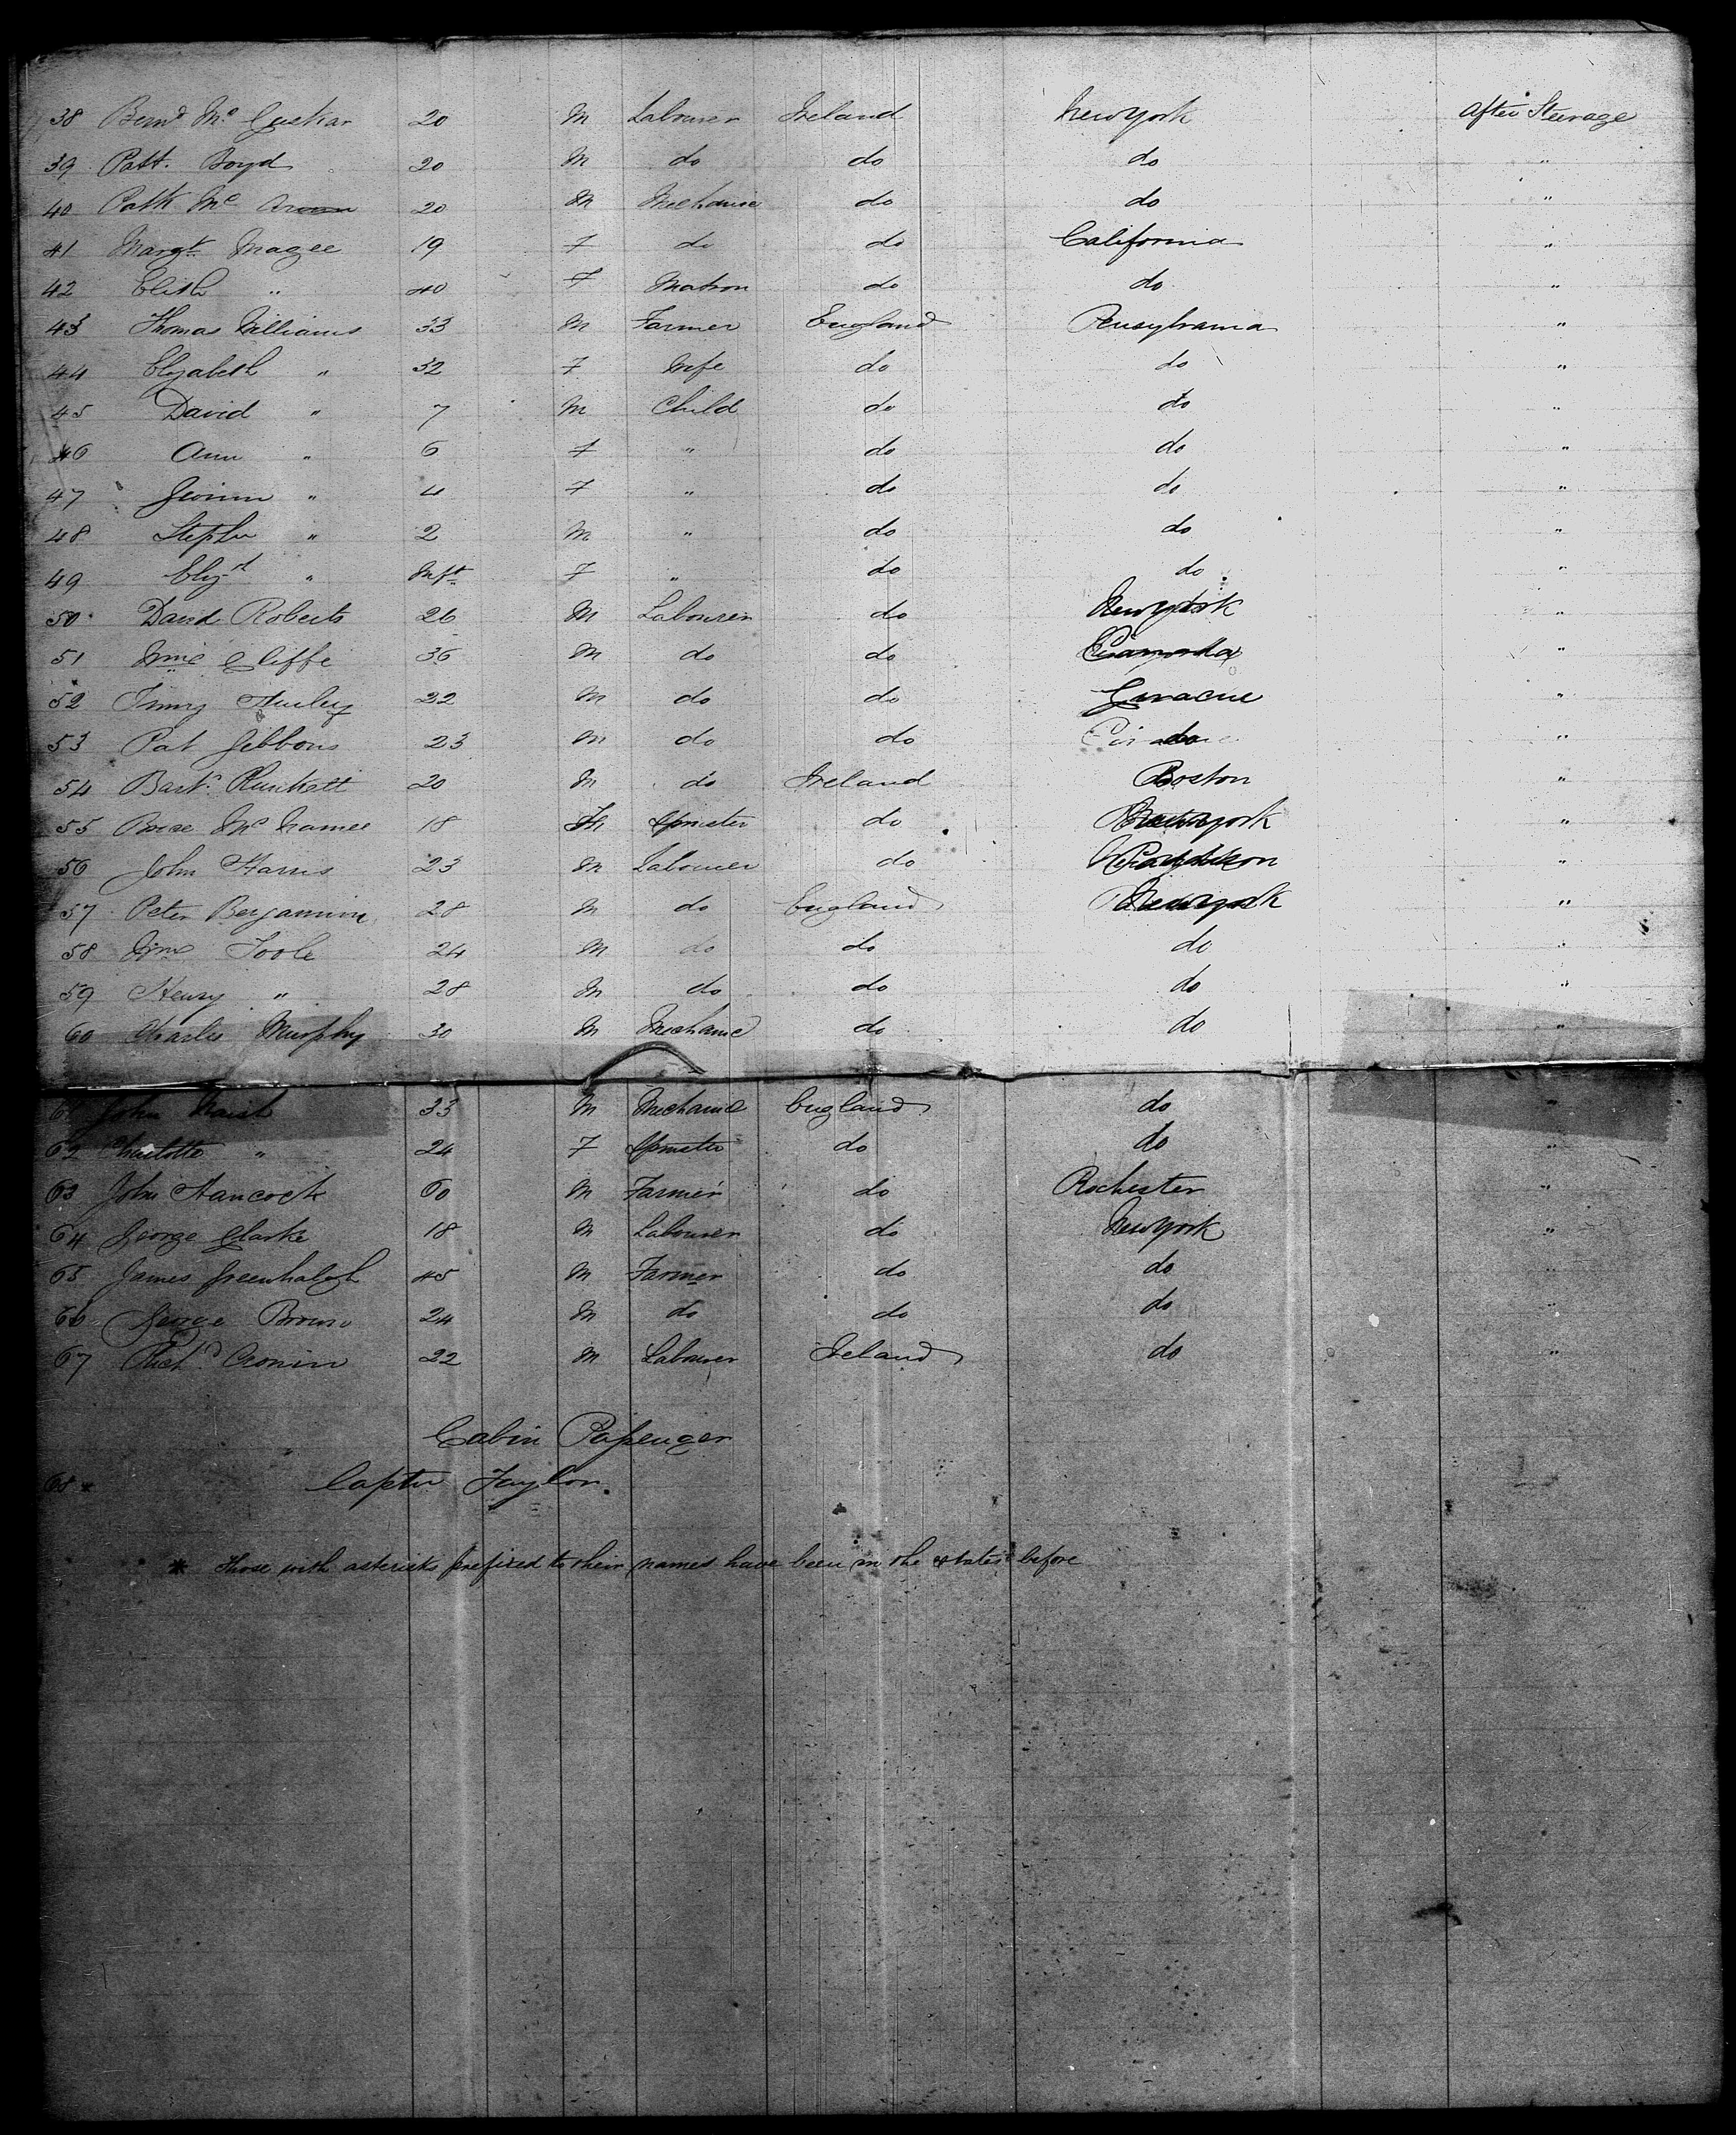 38 Bernd Mc Guskar 20 M Labourer Ireland New York After Steerage
39 Patt. Boyd 20 M do do do "
40 Patk Mc 20 M Mechanic do do "
41 Margt Magee 19 F do do California "
42 Elish " 40 F Matron do do "
43 Thomas Williams 33 M Farmer England Pensylvania "
44 Elizabeth " 32 F Wife do do "
45 David " 7 M Child do do "
46 Ann " 6 F " do do "
47 " 4 F " do do "
48 Stephen " 2 M " do do "
49 Elizth " Inft F " do do "
50 David Roberts 26 M Labourer do New York "
51 Wm Cliffe 36 M do do Canada "
52 Hurley 22 M do do "
53 Pat Gibbons 23 M do do do "
54 Bart. Plunkett 20 M do Ireland Boston "
55 Rose Mc Namee 18 F Spinster do New York "
56 John Harris 23 M Labourer do "
57 Peter Benjamin 28 M do England New York "
58 Wm Toole 24 M do do do "
59 Henry " 28 M do do do "
60 Charles Murphy 30 M Mechanic do do "
61 John Naish 33 M Mechanic England do
62 Charlotte " 24 F Spinster do do "
63 John Hancock 60 M Farmer do Rochester "
64 George Clarke 18 M Labourer do New York "
65 James Greenhalgh 45 M Farmer do do "
66 George Brown 24 M do do do "
67 Richd Cronin 22 M Labourer Ireland do "
Cabin Passenger
68 * Captn Taylor.
* Those with asterisks prefixed to their names have been in the states before